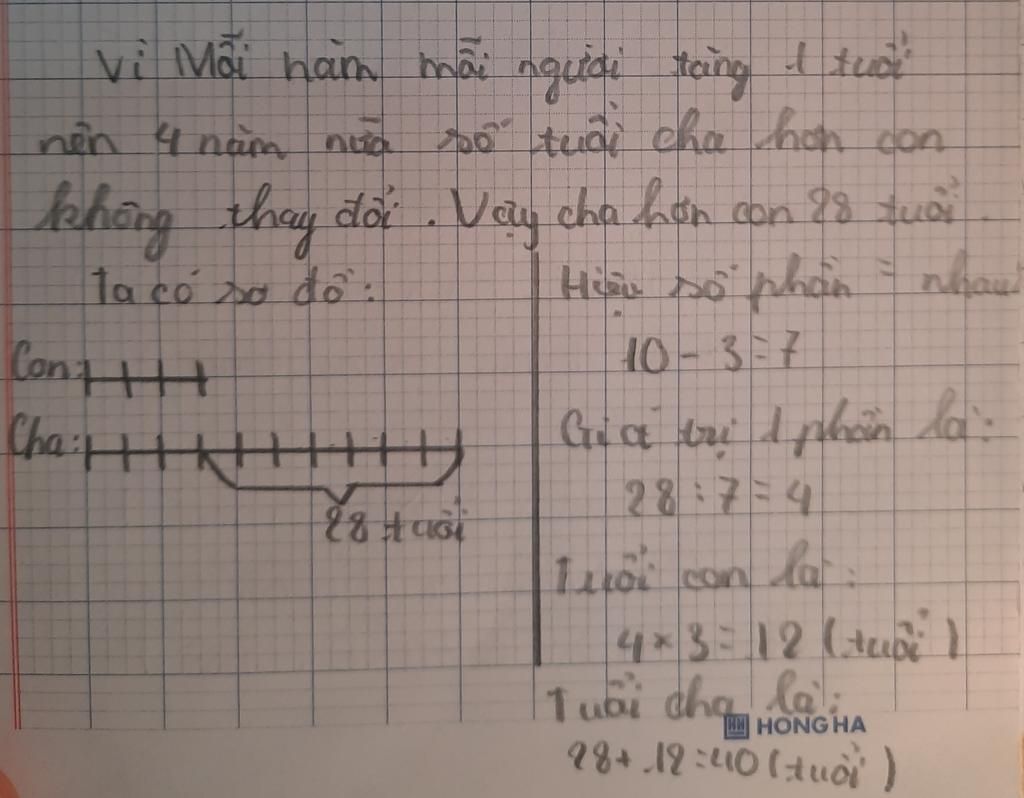 Vì Mỗi năm mỗi người tăng 1 tuổi
nên 4 năm nữa số tuổi cha hơn con
không thay đổi. Vậy cha hơn con 28 tuổi.
Ta có sơ đồ:
Con:
Cha:
28 tuổi
Hiệu số phần = nhau
10 - 3 = 7
Giá trị 1 phần là:
28 : 7 = 4
Tuổi con là:
4 × 3 = 12 (tuổi)
Tuổi cha là:
HH HONG HA
28 + 12 = 40 (tuổi)